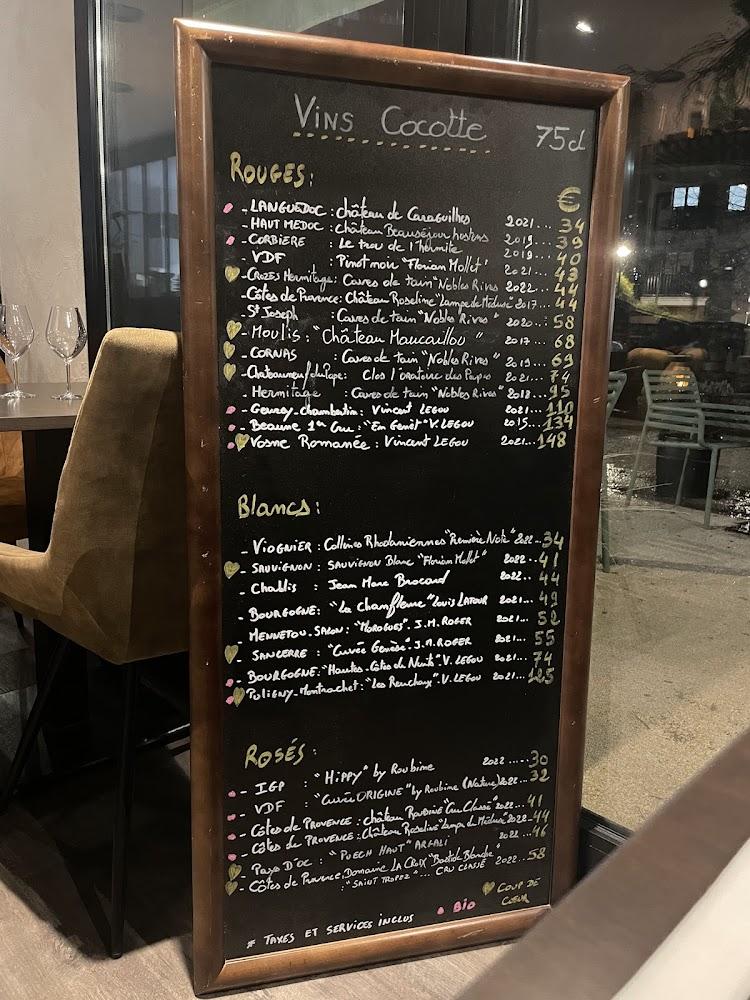 Vins Cocotte 75cl
ROUGES:
€
- LANGUEDOC : château de Caraguilhes 2021... 34
- HAUT MEDOC : château Beauséjour hostens 2019... 39
- CORBIERE : Le trou de l'hermite 2019... 40
- VDF : Pinot noir "Florian Mollet" 2021... 43
- CROZES Hermitage: Caves de tain "Nobles Rives" 2022... 44
- Côtes de Provence: Château Roseline "Lampe de Méduse" 2017... 44
St Joseph : Caves de tain "Nobles Rives" 2020... 58
- MOULIS : "Château Maucaillou" 2017... 68
- CORNAS : Caves de tain "Nobles Rives" 2019... 69
- Chateauneuf du Pape: Clos l'oratoire des Papes 2021... 74
- Hermitage : Caves de tain "Nobles Rives" 2018... 95
- Gevrey-chambertin: Vincent LEGOU 2021... 110
- Beaune 1er Cru : "En Genêt" V. LEGOU 2015... 134
- Vosne Romanée : Vincent LEGOU 2021... 148
Blancs :
- VIOGNIER : Collines Rhodaniennes "Première Note" 2022... 34
- SAUVIGNON : SAUVIGNON Blanc "Florian Mollet" 2022.. 41
- Chablis : Jean Marc Brocard 2022.. 44
- BOURGOGNE: "La Chanfleure" Louis LATOUR 2021... 49
- MENNETOU. SALON: "MOROGUES". J.M. ROGER 2021... 52
- SANCERRE : "Cuvée Genèse". J.M. ROGER 2021... 55
- BOURGOGNE: "Hautes-Côtes de Nuits" V. LEGOU 2021... 74
- PULIGNY-Montrachet: "Les Reuchaux". V. LEGOU 2021... 125
ROSÉS :
- IGP : "HIPPY" by Roubine 2022 ..... 30
- VDF : "Cuvée ORIGINE" by Roubine (Nature) 2022... 32
- Côtes de PROVENCE : château ROUBINE "Cru Classé" 2022... 41
- Côtes de PROVENCE : Château Roseline "Lampe de Méduse" 2022- 44
- Pays D'OC : "PUECH HAUT" ARGALI 2022 ... 46
- Côtes de Provence. Domaine LA CROIX "Bastide Blanche" 2022... 58
"SAINT TROPEZ" ... CRU CLASSÉ
COUP DE
COEUR
BIO
* TAXES ET SERVICES INCLUS